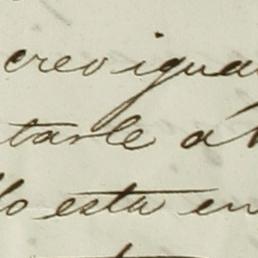 creo igua
tarle á
lo esta en